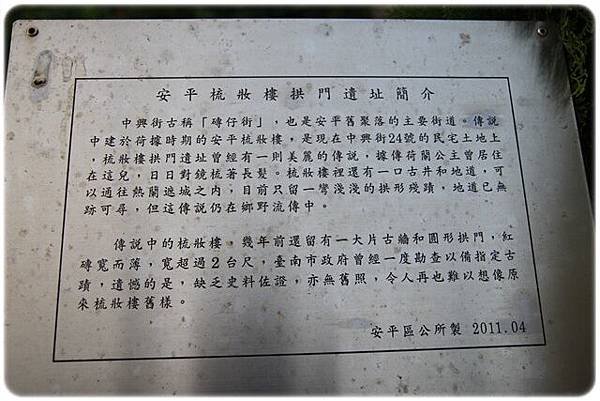 安平梳妝樓拱門遺址簡介
中興街古稱「磚仔街」,也是安平舊聚落的主要街道。傳說
中建於荷據時期的安平梳妝樓,是現在中興街24號的民宅土地上
,梳妝樓拱門遺址曾經有一則美麗的傳說,據傳荷蘭公主曾居住
在這兒,日日對鏡梳著長髮。梳妝樓裡還有一口古井和地道,可
以通往熱蘭遮城之內,目前只留一彎淺淺的拱形殘蹟,地道已無
跡可尋,但這傳說仍在鄉野流傳中。
傳說中的梳妝樓,幾年前還留有一大片古牆和圓形拱門,紅
磚寬而薄,寬超過2台尺,臺南市政府曾經一度勘查以備指定古
蹟,遺憾的是,缺乏史料佐證,亦無舊照,令人再也難以想像原
來梳妝樓舊樣。
安平區公所製 2011.04